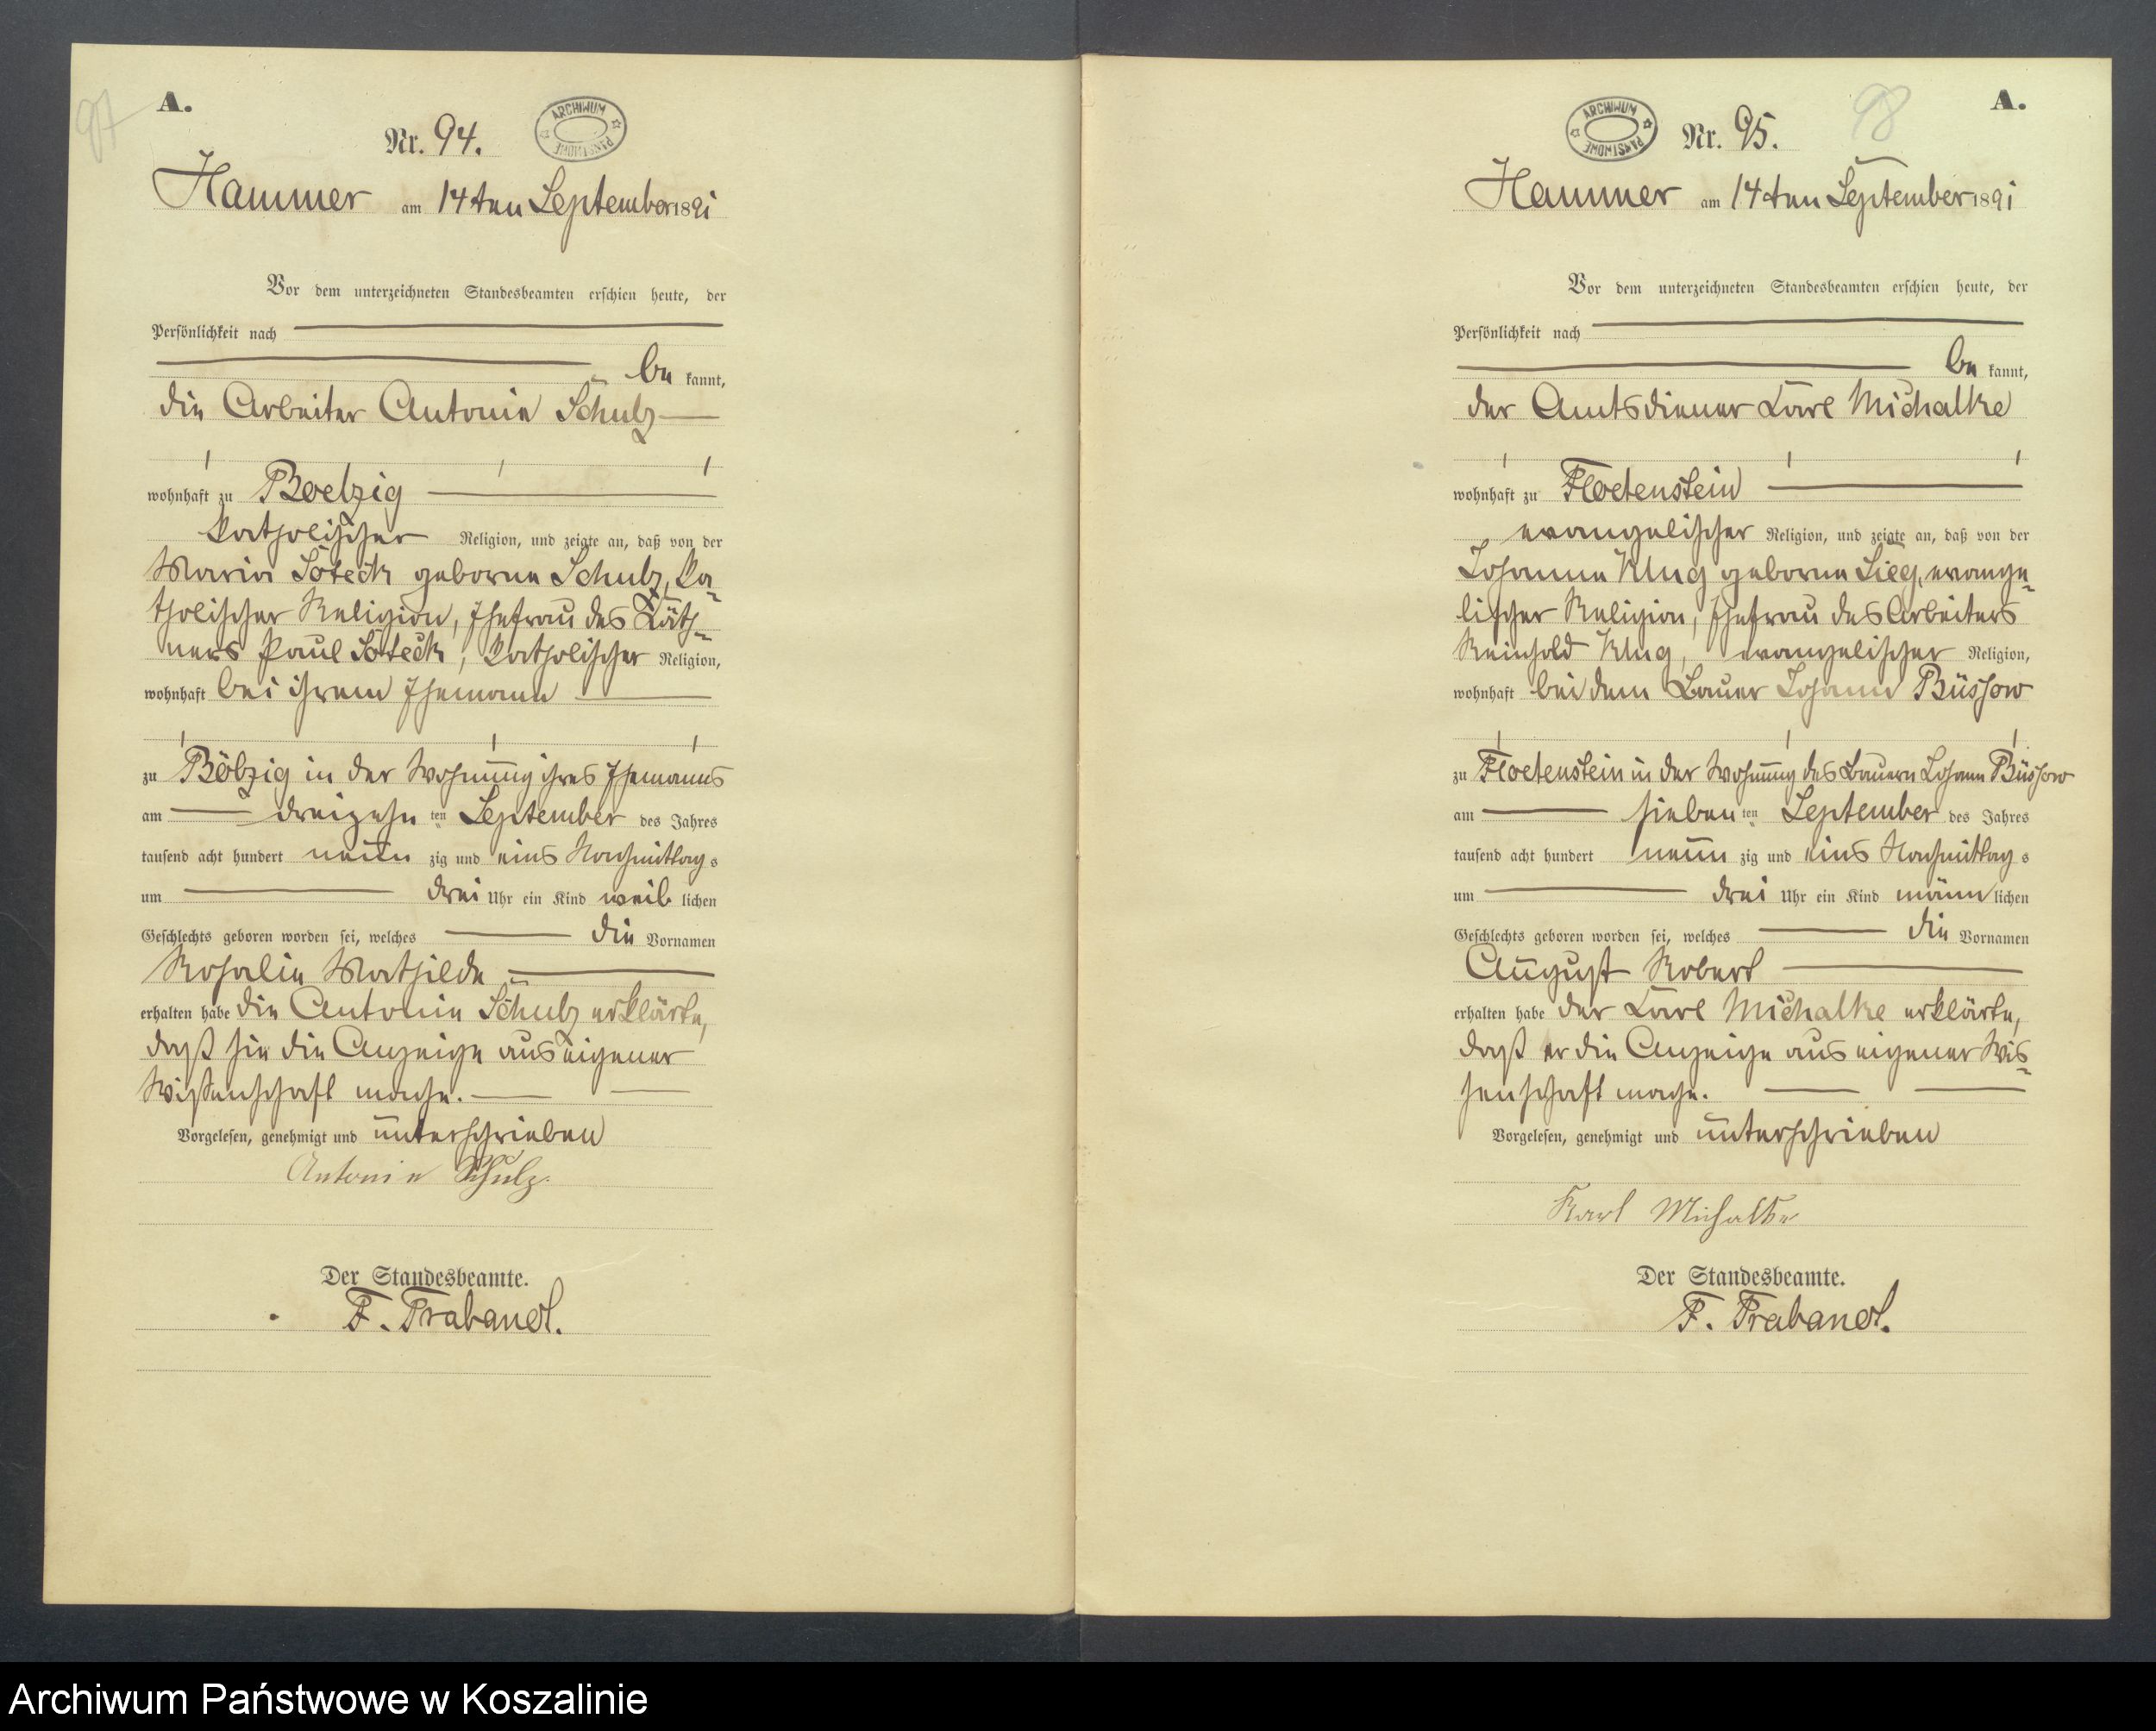 97
A.
Nr. 94.
ARCHIWUM PAŃSTWOWE
Hammer am 14ten September 1891
Vor dem unterzeichneten Standesbeamten erschien heute, der
Persönlichkeit nach
be kannt,
die Arbeiter Antonie Schulz
wohnhaft zu Boelzig
katholischer Religion, und zeigte an, daß von der
Maria Soteck geborne Schulz, ka-
tholischer Religion, Ehefrau des Käth-
ners Paul Soteck, katholischer Religion,
wohnhaft bei ihrem Ehemann
zu Bölzig in der Wohnung ihres Ehemanns
am dreizehn ten September des Jahres
tausend acht hundert neun zig und eins Nachmittag s
um drei Uhr ein Kind weib lichen
Geschlechts geboren worden sei, welches die Vornamen
Rosalie Mathilde
erhalten habe die Antonie Schulz erklärte,
daß sie die Anzeige aus eigener
Wissenschaft mache.
Vorgelesen, genehmigt und unterschrieben
Antonie Schulz.
Der Standesbeamte.
F. Trabandt.
98
A.
ARCHIWUM PAŃSTWOWE
Nr. 95.
Hammer am 14ten September 1891
Vor dem unterzeichneten Standesbeamten erschien heute, der
Persönlichkeit nach
be kannt,
der Amtsdiener Karl Michalke
wohnhaft zu Floetenstein
evangelischer Religion, und zeigte an, daß von der
Johanne Klug geborne Sieg, evange-
lischer Religion, Ehefrau des Arbeiters
Reinhold Klug, evangelischer Religion,
wohnhaft bei dem Bauer Johann Büssow
zu Floetenstein in der Wohnung des Bauern Johann Büssow
am sieben ten September des Jahres
tausend acht hundert neun zig und eins Nachmittag s
um drei Uhr ein Kind männ lichen
Geschlechts geboren worden sei, welches die Vornamen
August Robert
erhalten habe der Karl Michalke erklärte,
daß er die Anzeige aus eigener Wis-
senschaft mache.
Vorgelesen, genehmigt und unterschrieben
Karl Michalke
Der Standesbeamte.
F. Trabandt.
Archiwum Państwowe w Koszalinie